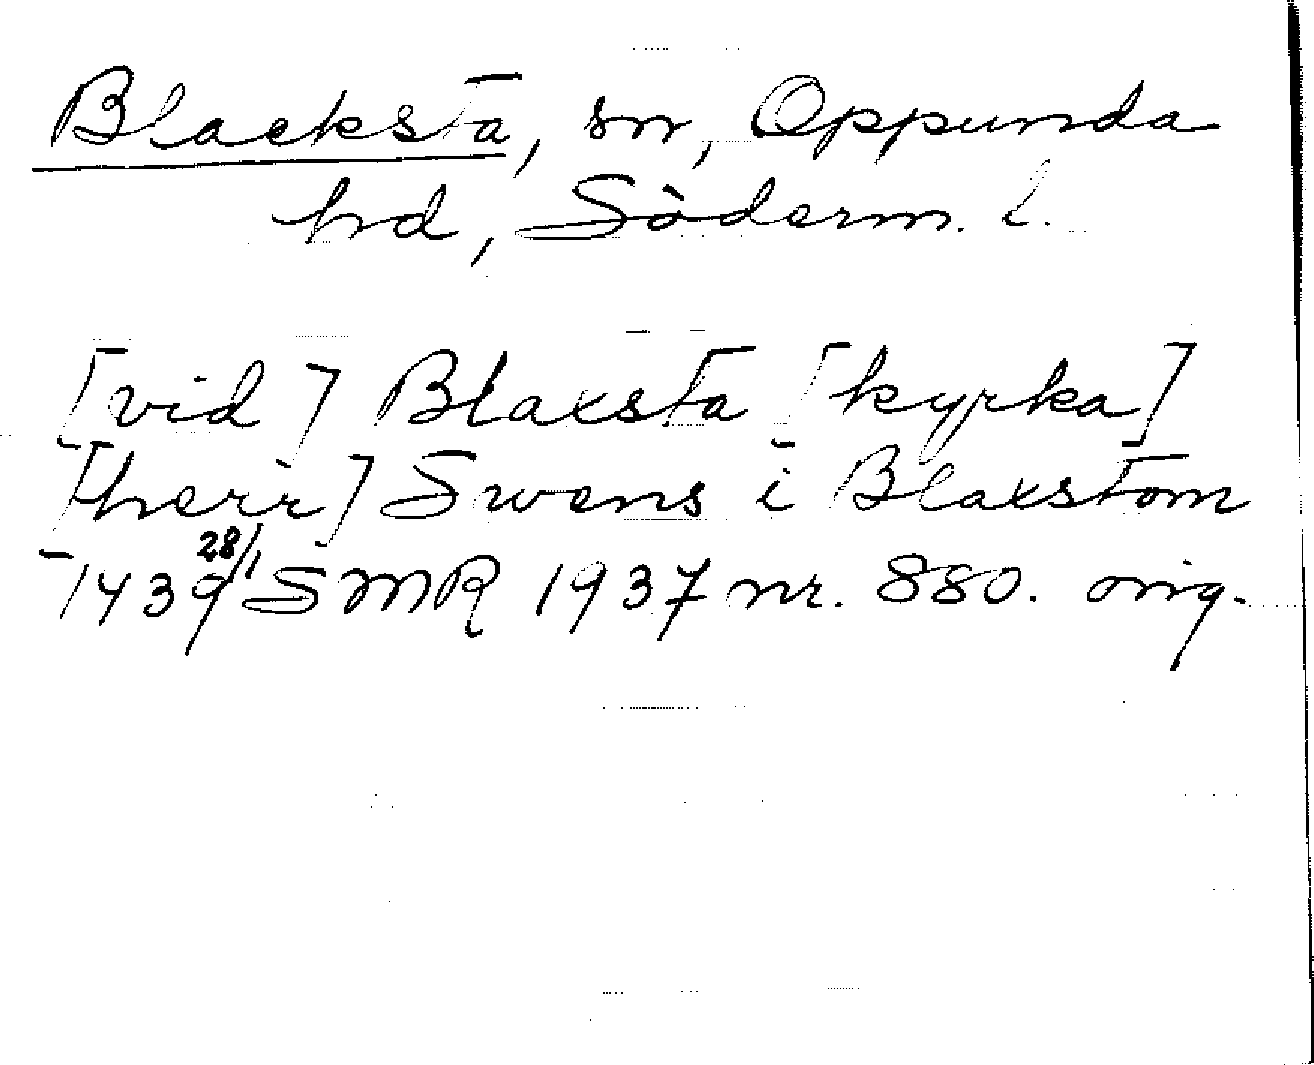 Blacksta, sn, Oppunda
hd, Söderm. l.
[vid] Blaxsta [kyrka]
[herr] Swens i Blaxstom
1439 28/1 SMR 1937 nr. 880. orig.